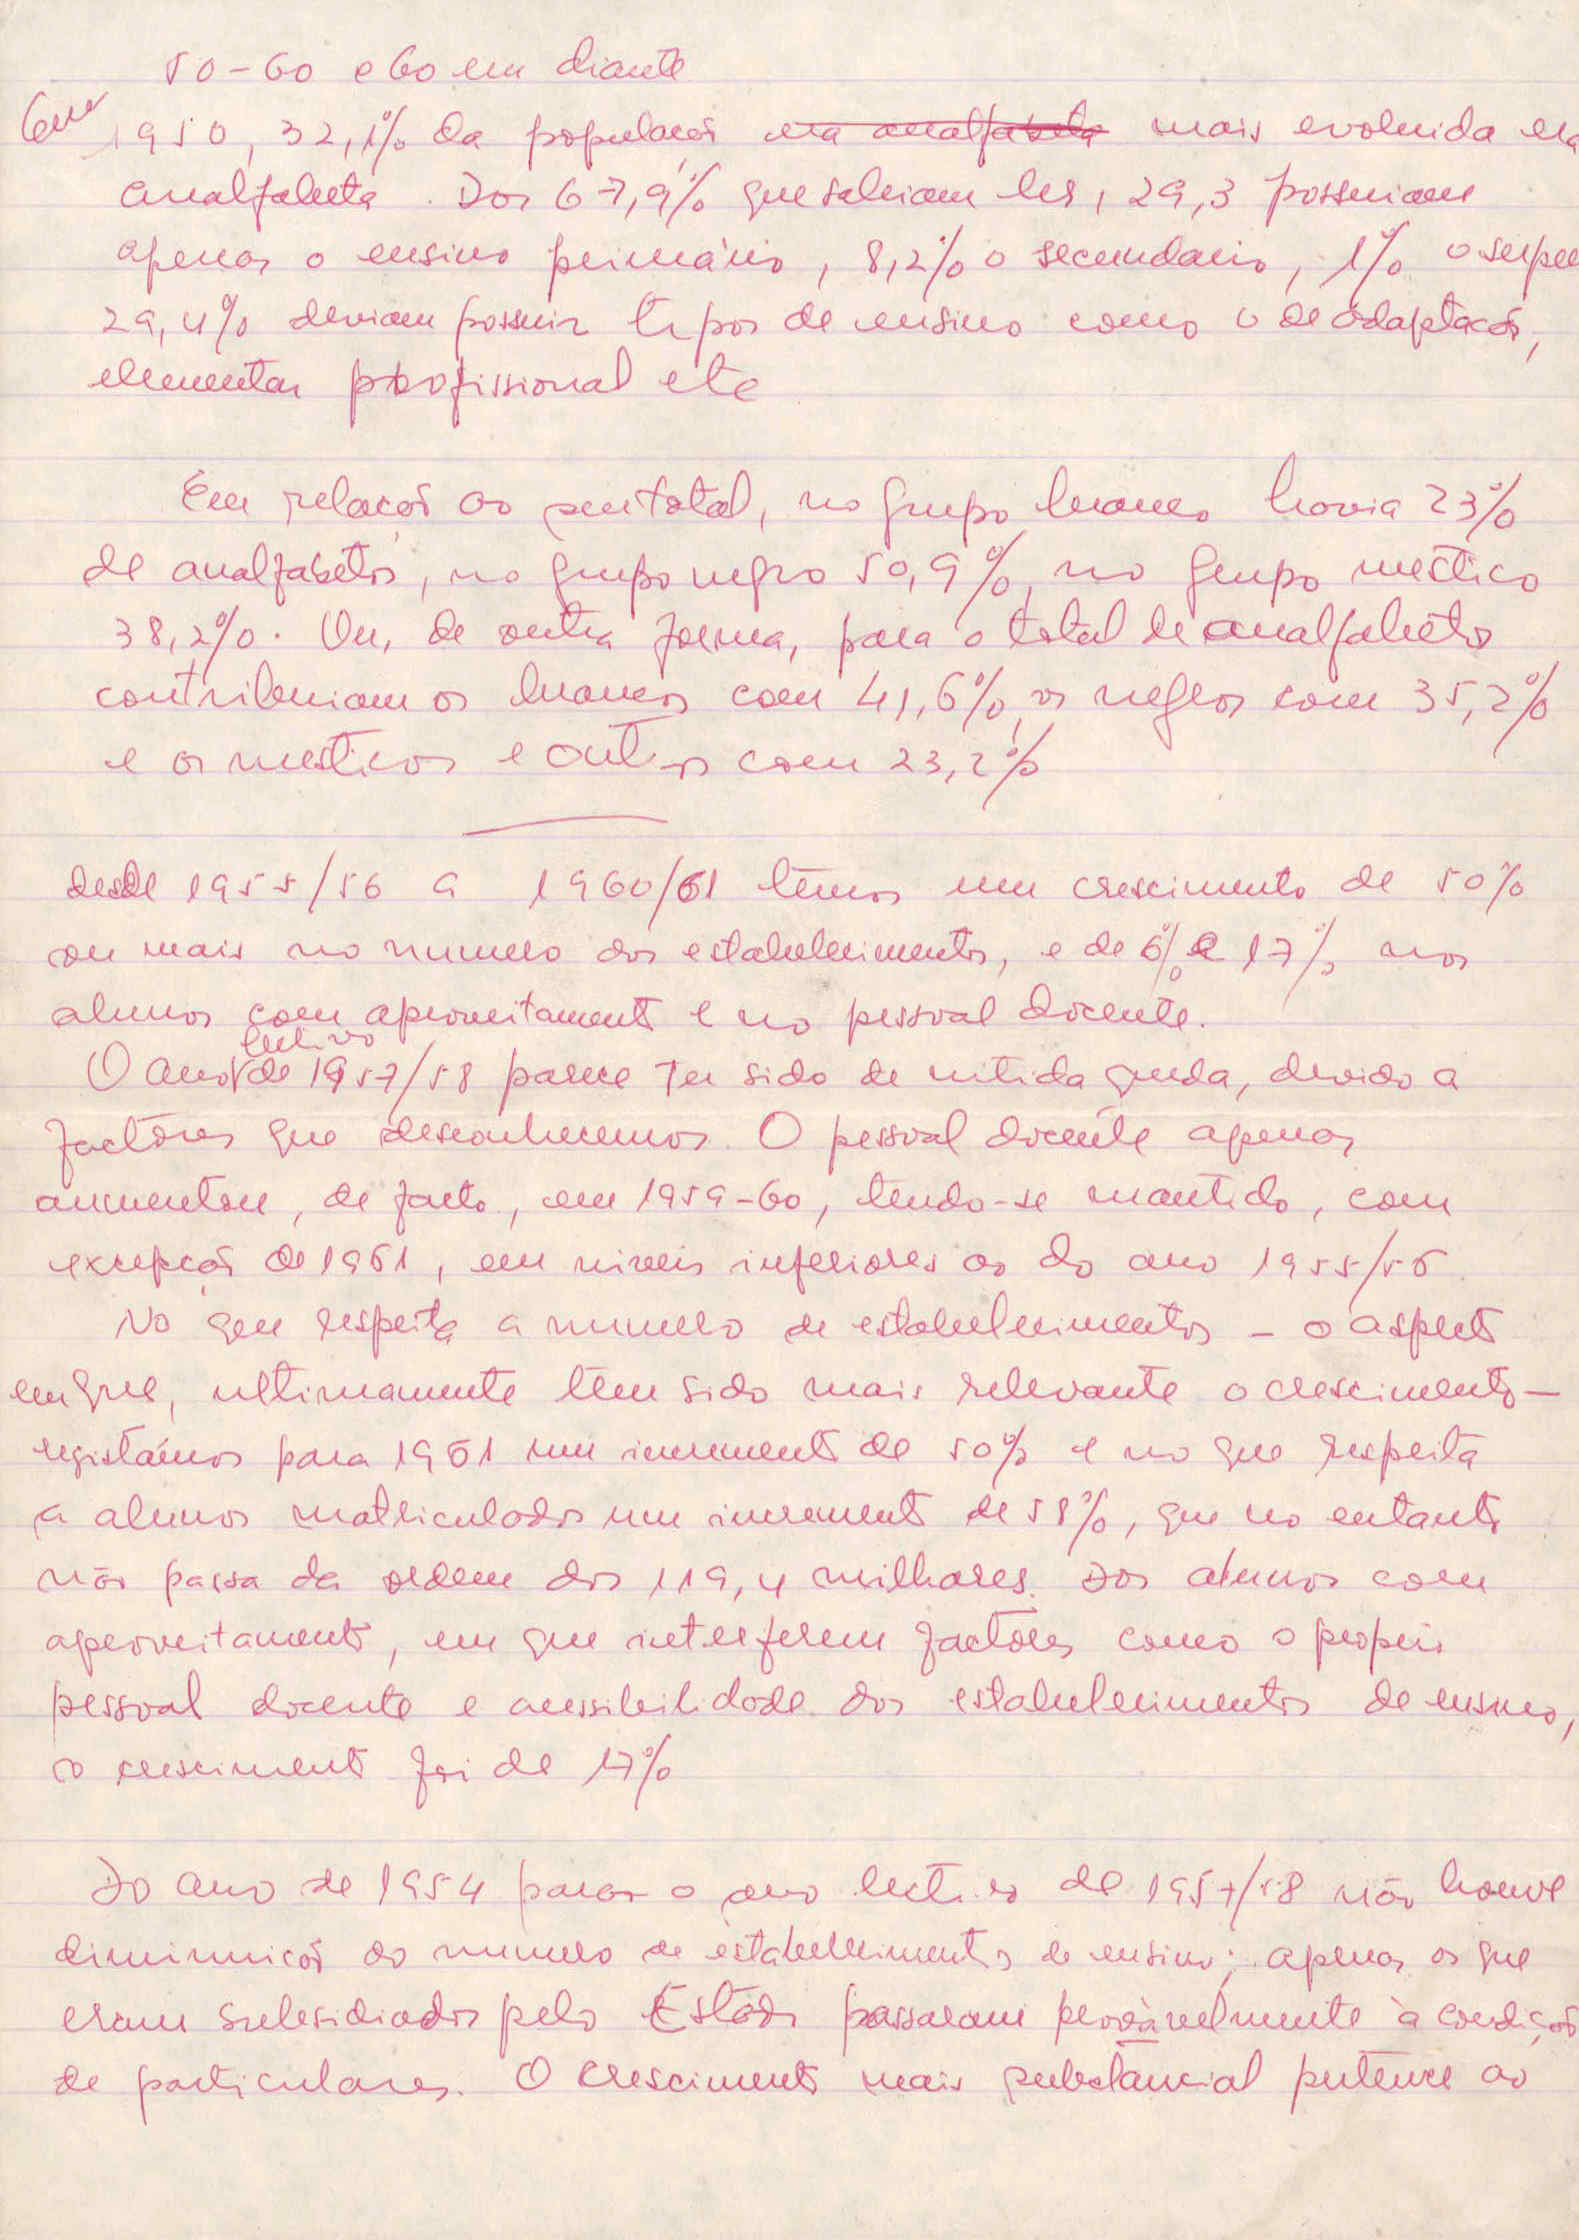 50-60 e 60 em diante
Em 1950, 32,1% da população era analfabeta mais evoluida era
analfabeta. Dos 67,9% que sabiam ler, 29,3 possuiam
apenas o ensino primário, 8,2% o secundario, 1% o super
29,4% deviam possuir tipos de ensino como o de adaptação,
elementar profissional etc
Em relação ao total, no grupo branco havia 23%
de analfabetos, no grupo negro 50,9%, no grupo mestiço
38,2%. Ou, de outra forma, para o total de analfabetos
contribuiam os brancos com 41,6%, os negros com 35,2%
e os mestiços e outros com 23,2%
desde 1955/56 a 1960/61 temos um crescimento de 50%
ou mais no numero dos estabelecimentos, e de 6% e 17% nos
alunos com aproveitamento e no pessoal docente.
lectivo
O ano de 1957/58 parece ter sido de nitida queda, devido a
factores que desconhecemos. O pessoal docente apenas
aumentou, de facto, em 1959-60, tendo-se mantido, com
excepção de 1961, em niveis inferiores ao do ano 1955/56
No que respeita a numero de estabelecimentos - o aspecto
em que, ultimamente tem sido mais relevante o crescimento -
registámos para 1961 um incremento de 50% e no que respeita
a alunos matriculados um incremento de 58%, que no entanto
não passa da ordem dos 119,4 milhares. Dos alunos com
aproveitamento, em que interferem factores como o proprio
pessoal docente e acessibilidade dos estabelecimentos de ensino,
o crescimento foi de 17%
Do ano de 1954 para o ano lectivo de 1957/58 não houve
diminuição do numero de estabelecimentos de ensino; apenas os que
eram subsidiados pelo Estado passaram provàvelmente à condição
de particulares. O crescimento mais substancial pertence ao